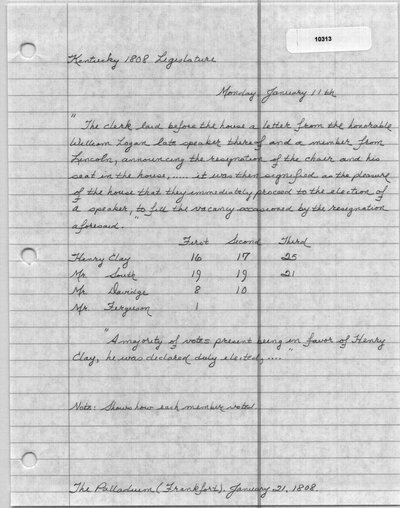 10313
Kentucky 1808 Legislature
Monday January 11th
"The Clerk laid before the house a letter from the honorable
William Logan late speaker thereof and a member from
Lincoln, announcing the resignation of the chair and his
seat in the house,...... it was then signified as the pleasure
of the house that they immediately proceed to the election of
a speaker, to fill the vacancy occasioned by the resignation
aforesaid."
First Second Third
Henry Clay 16 17 25
Mr. South 19 19 21
Mr. Davidge 8 10
Mr. Ferguson 1
"A majority of votes present being in favor of Henry
Clay, he was declared duly elected,...."
Note: Shows how each member voted.
The Palladium (Frankfort). January 21, 1808.